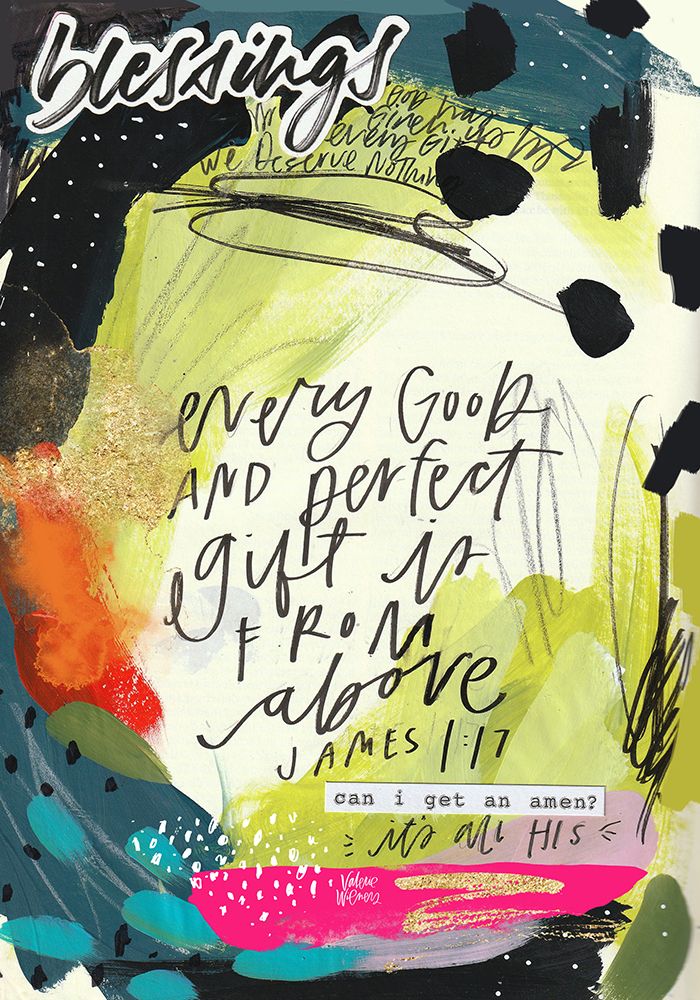 blessings
God has
given us
every Gift
we Deserve Nothing
every Good
AND perfect
gift is
FROM
above
JAMES 1:17
can i get an amen?
it's all HIS
Valerie
Wieners